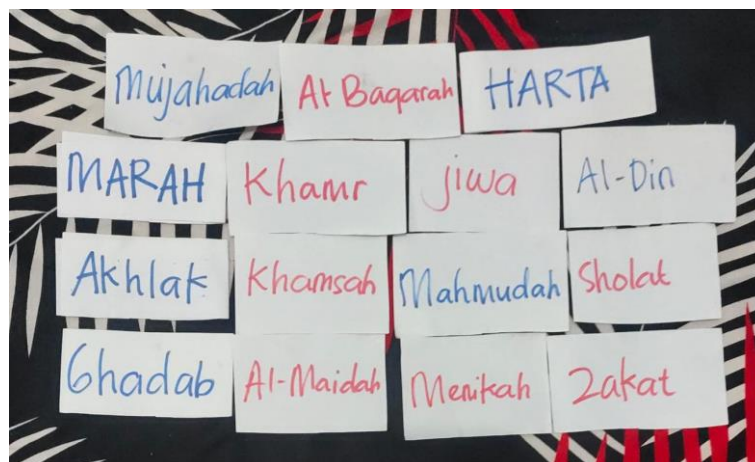 Mujahadah At Baqarah HARTA
MARAH Khamr jiwa Al-Din
Akhlak Khamsah Mahmudah Sholat
Ghadab Al-Maidah Menikah Zakat